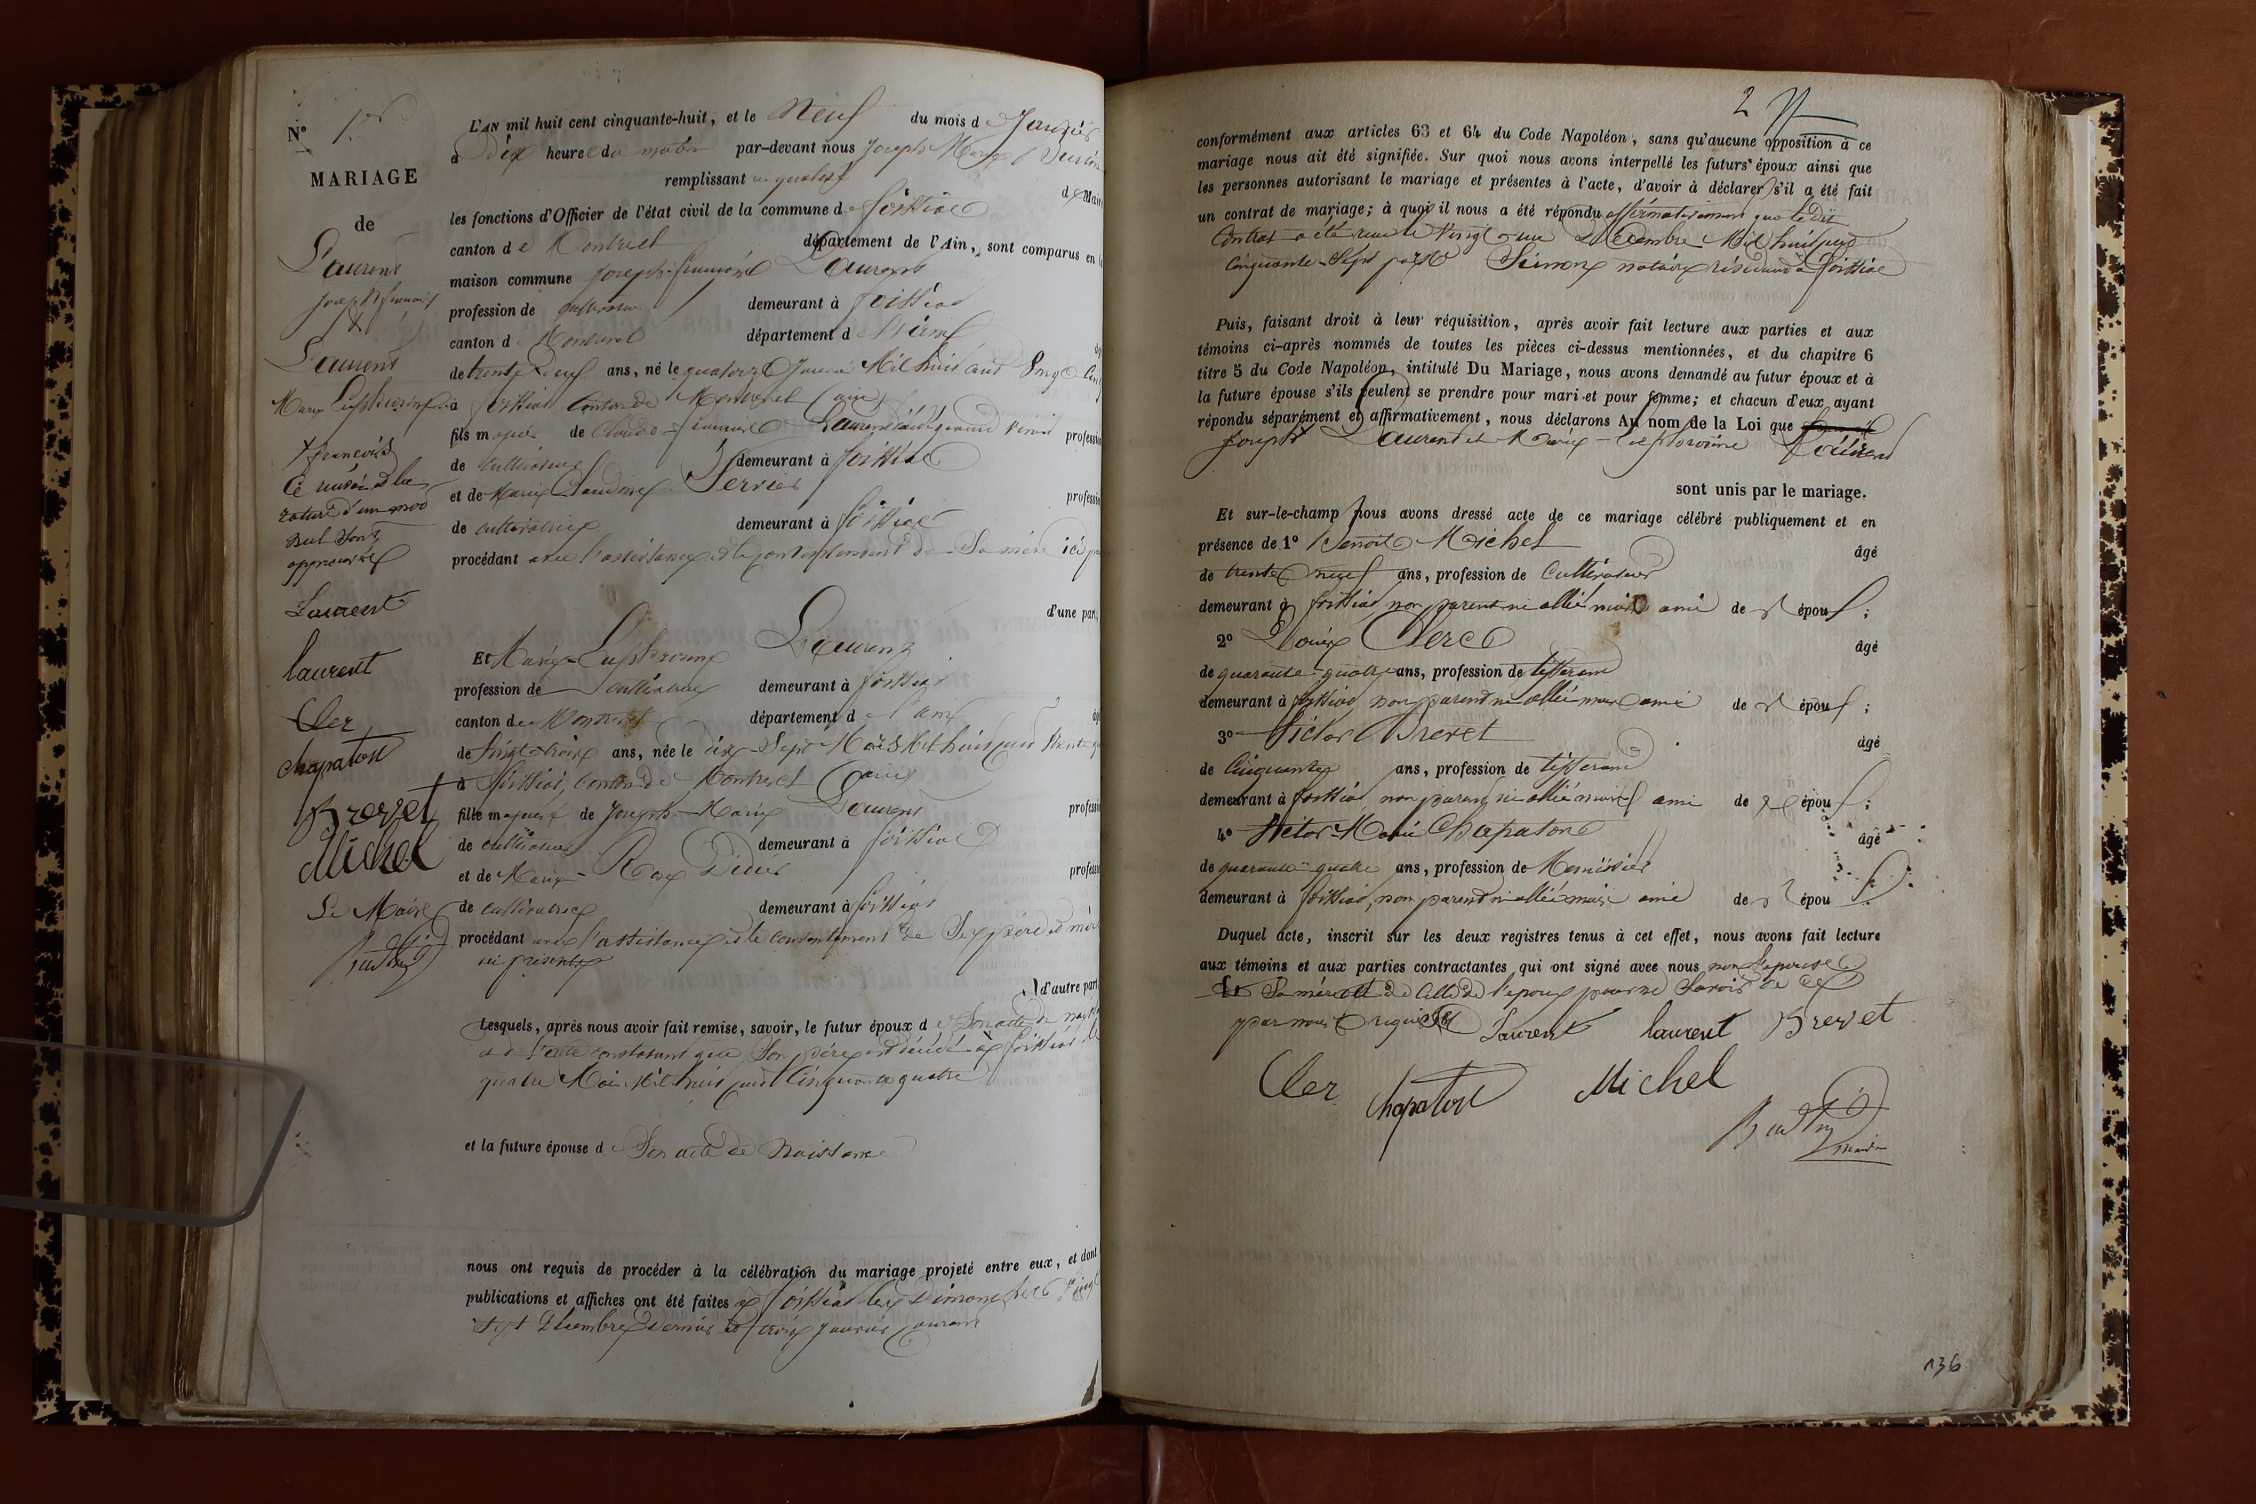 N° 1er
MARIAGE
de
Laurent
Joseph françois
&
Laurent
Marie Euphrosine
+ françois
Ce renvoi et la
rature d'un mot
nul sont
approuvés
Laurent
laurent
Cler
Chapaton
Brevet
Michel
Le Maire
L'AN mil huit cent cinquante-huit, et le Neuf du mois de Janvier
à dix heures du matin par-devant nous Joseph Marie
remplissant en qualité de Maire
les fonctions d'Officier de l'état civil de la commune de foissiat
canton de Montrevel département de l'Ain, sont comparus en la
maison commune Joseph-françois Laurent
profession de cultivateur demeurant à foissiat
canton de Montrevel département de l'ain
de trente deux ans, né le quatorze Janvier Mil huit cent Vingt Cinq
à foissiat Canton de Montrevel (ain)
fils majeur de Claude-françois Laurent profession
de cultivateur demeurant à foissiat
et de Marie Perrier profession
de cultivatrice demeurant à foissiat
procédant avec l'assistance et le consentement de Sa mère ici
d'une part,
Et Marie-Euphrosine Laurent
profession de Cultivatrice demeurant à foissiat
canton de Montrevel département de l'ain
de vingt-trois ans, née le dix-Sept Mars Mil huit cent trente
à foissiat, canton de Montrevel (ain)
fille majeure de Joseph-Marie Laurent profession
de cultivateur demeurant à foissiat
et de Marie-Rose Didier profession
de cultivatrice demeurant à foissiat
procédant avec l'assistance et le consentement de Ses père et mère
ici présents
d'autre part
Lesquels, après nous avoir fait remise, savoir, le futur époux de Son acte de
et de l'acte constatant que Son père est décédé à foissiat le
quatre Mai Mil huit cent Cinquante quatre
et la future épouse de Son acte de Naissance
nous ont requis de procéder à la célébration du mariage projeté entre eux, et dont
publications et affiches ont été faites à foissiat les Dimanches vingt
Sept Décembre dernier et trois Janvier Courant
2
conformément aux articles 63 et 64 du Code Napoléon, sans qu'aucune opposition à ce
mariage nous ait été signifiée. Sur quoi nous avons interpellé les futurs époux ainsi que
les personnes autorisant le mariage et présentes à l'acte, d'avoir à déclarer s'il a été fait
un contrat de mariage; à quoi il nous a été répondu affirmativement que le dit
Contrat a été reçu le Vingt-un Décembre Mil huit cent
Cinquante-Sept par Me Simon notaire résidant à foissiat
Puis, faisant droit à leur réquisition, après avoir fait lecture aux parties et aux
témoins ci-après nommés de toutes les pièces ci-dessus mentionnées, et du chapitre 6
titre 5 du Code Napoléon, intitulé Du Mariage, nous avons demandé au futur époux et à
la future épouse s'ils veulent se prendre pour mari et pour femme; et chacun d'eux ayant
répondu séparément et affirmativement, nous déclarons Au nom de la Loi que
Joseph Laurent et Marie-Euphrosine
sont unis par le mariage.
Et sur-le-champ nous avons dressé acte de ce mariage célébré publiquement et en
présence de 1° Benoit Michel âgé
de trente neuf ans, profession de Cultivateur
demeurant à foissiat non parent ni allié mais ami de l'époux;
2° Louis Clerc âgé
de quarante-quatre ans, profession de tisserand
demeurant à foissiat non parent ni allié mais ami de l'époux;
3° Victor Brevet âgé
de Cinquante ans, profession de tisserand
demeurant à foissiat non parent ni allié mais ami de l'époux;
4° Victor-Marie Chapaton âgé
de quarante-quatre ans, profession de Menuisier
demeurant à foissiat, non parent ni allié mais ami de l'époux.
Duquel acte, inscrit sur les deux registres tenus à cet effet, nous avons fait lecture
aux témoins et aux parties contractantes qui ont signé avec nous non l'épouse
Sa mère et celle de l'époux pour ne Savoir de ce
par nous requises Laurent laurent Brevet
Cler Chapaton Michel
maire
136